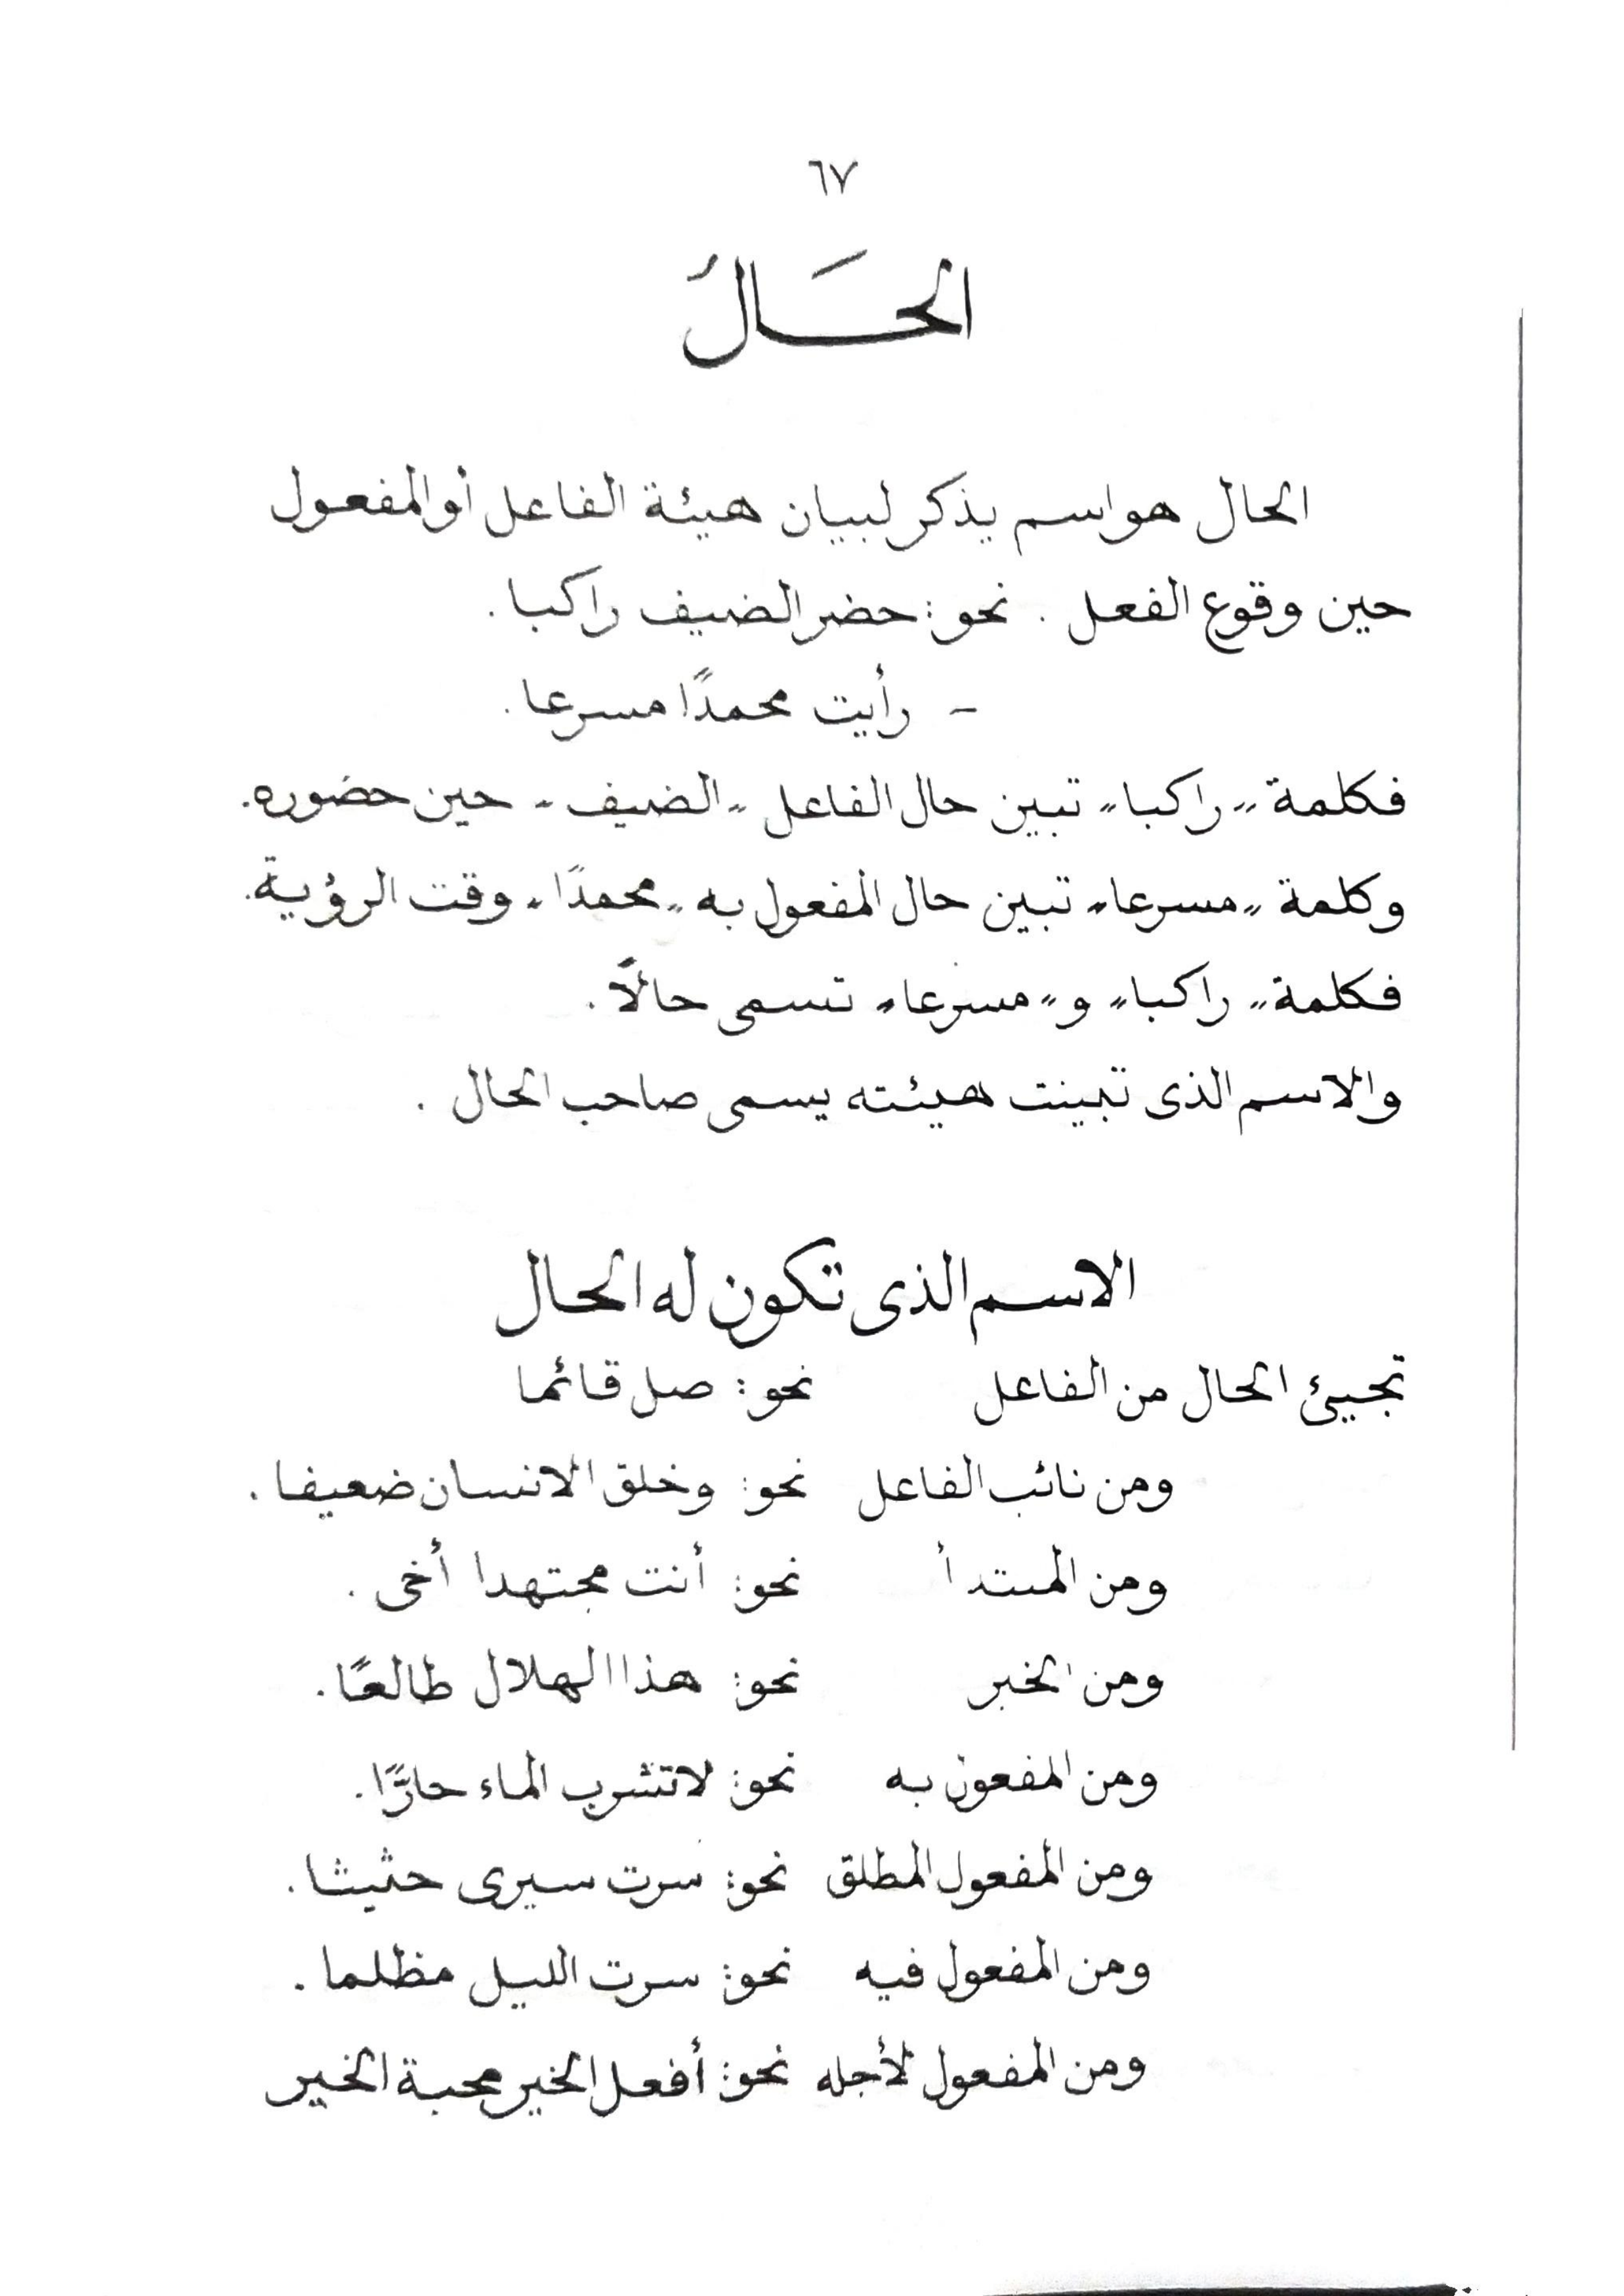 ٦٧
الحَالُ
الحال هو اسم يذكر لبيان هيئة الفاعل أو المفعول
حين وقوع الفعل . نحو : حضر الضيف راكبا .
- رأيت محمدًا مسرعا .
فكلمة " راكبا " تبين حال الفاعل " الضيف " حين حضوره .
وكلمة " مسرعا " تبين حال المفعول به " محمدًا " وقت الرؤية .
فكلمة " راكبا " و " مسرعا " تسمى حالاً .
والاسم الذى تبينت هيئته يسمى صاحب الحال .
الاسم الذى تكون له الحال
تجيئ الحال من الفاعل نحو : صل قائما
ومن نائب الفاعل نحو : وخلق الانسان ضعيفا .
ومن المبتدأ نحو : أنت مجتهدا أخى .
ومن الخبر نحو : هذا الهلال طالعًا .
ومن المفعول به نحو : لا تشرب الماء حارًّا .
ومن المفعول المطلق نحو : سرت سيرى حثيثا .
ومن المفعول فيه نحو : سرت الليل مظلما .
ومن المفعول لأجله نحو : أفعل الخير محبة الخير